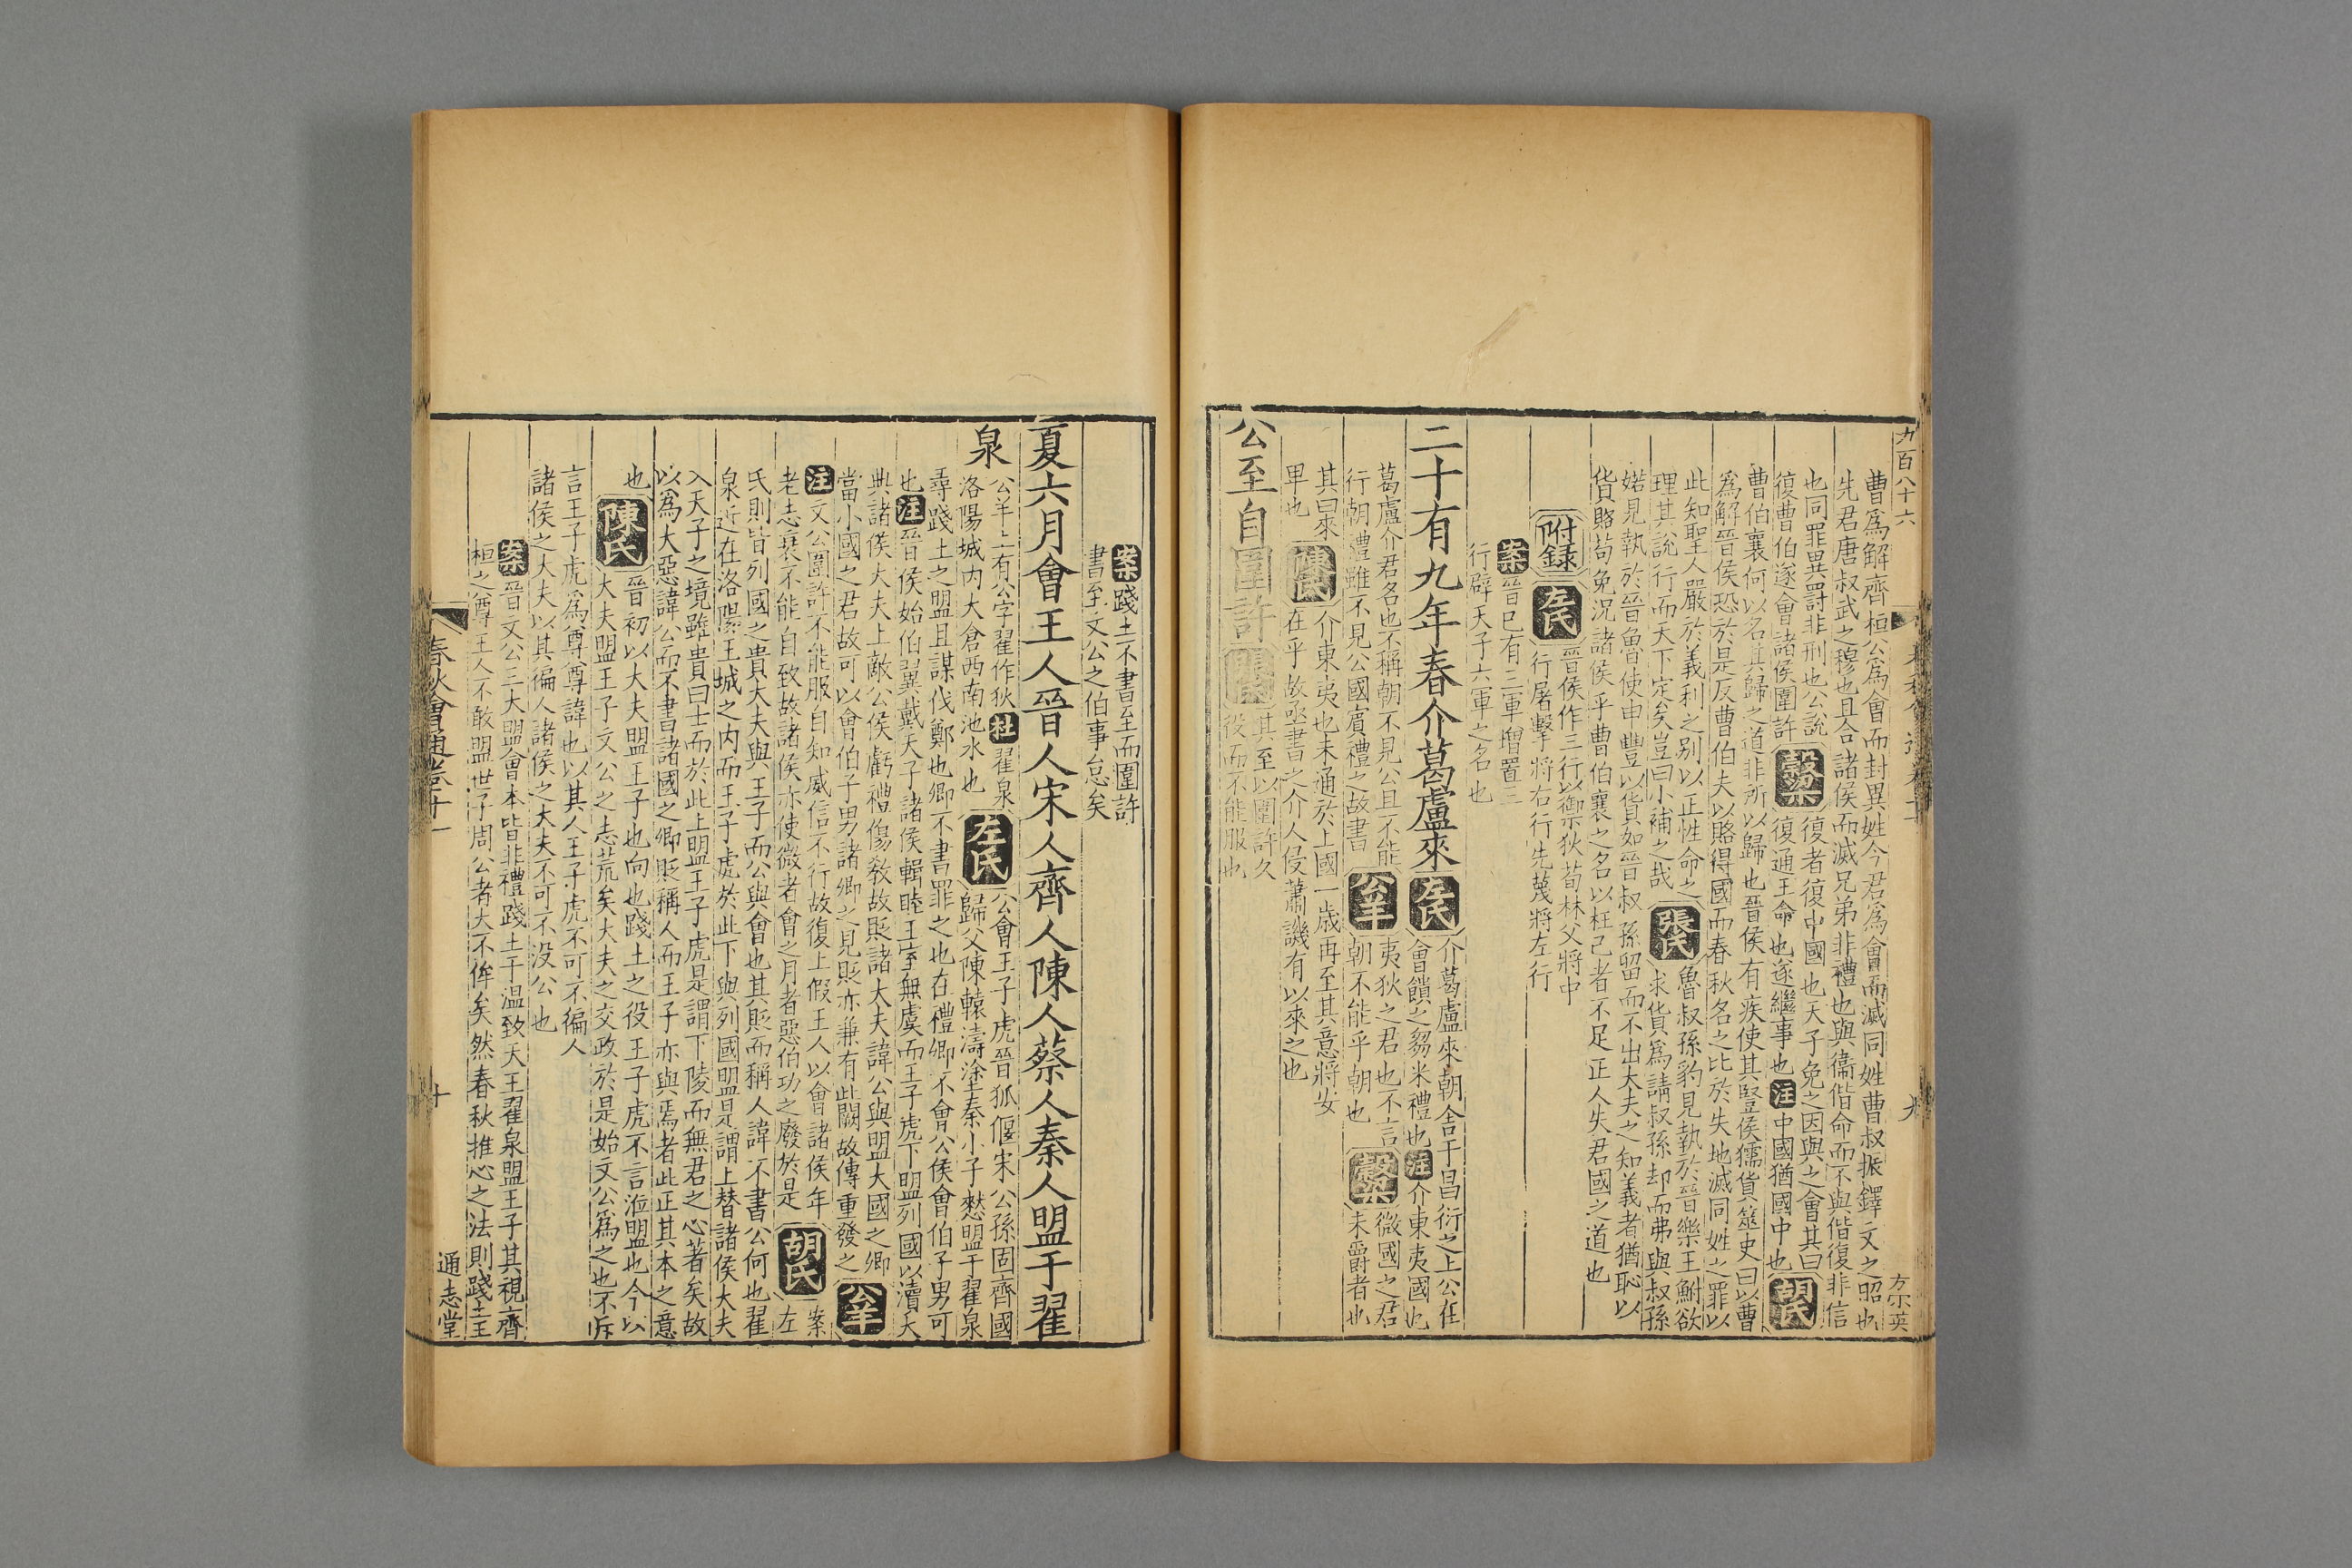 九百八十六
方不英
曹爲解齊桓公爲會而封異姓今君爲會而滅同姓曹叔振鐸文之昭也
先君唐叔武之穆也且合諸侯而滅兄弟非禮也與衞偕命而不與偕復非信
也同罪異罰非刑也公說
復曹伯遂會諸侯圍許
穀梁
復者復中國也天子免之因與之會其曰
復通王命也遂繼事也注中國猶國中也
胡氏
曹伯襄何以名其歸之道非所以歸也晉侯有疾使其豎侯獳貨筮史曰以曹
爲解晉侯恐於是反曹伯夫以賂得國而春秋名之比於失地滅同姓之罪以
此知聖人嚴於義利之别以正性命之
理其說行而天下定矣豈曰小補之哉
張氏
魯叔孫豹見執於晉樂王鮒欲
求貨爲請叔孫却而弗與叔孫
婼見執於晉魯使申豐以貨如晉叔孫留而不出大夫之知義者猶恥以
貨賂苟免況諸侯乎曹伯襄之名以枉己者不足正人失君國之道也
附録
左氏
晉侯作三行以禦狄荀林父將中
行屠擊將右行先蔑將左行
案晉已有三軍增置三
行辟天子六軍之名也
二十有九年春介葛盧來
左氏
介葛盧來朝舍于昌衍之上公在
會饋之芻米禮也注介東夷國也
葛盧介君名也不稱朝不見公且不能
行朝禮雖不見公國賓禮之故書
公羊
夷狄之君也不言
朝不能乎朝也
穀梁
微國之君
未爵者也
其曰來
卑也
陳氏
介東夷也未通於上國一歳再至其意將安
在乎故亟書之介人侵蕭譏有以來之也
公至自圍許
其至以圍許久
役而不能服也
案踐土不書至而圍許
書至文公之伯事怠矣
夏六月會王人晉人宋人齊人陳人蔡人秦人盟于翟
泉
公羊上有公字翟作狄杜翟泉
洛陽城内大倉西南池水也
左氏
公會王子虎晉狐偃宋公孫固齊國
歸父陳轅濤塗秦小子憖盟于翟泉
尋踐土之盟且謀伐鄭也卿不書罪之也在禮卿不會公侯會伯子男可
也注晉侯始伯翼戴天子諸侯輯睦王室無虞而王子虎下盟列國以瀆大
典諸侯大夫上敵公侯虧禮傷敎故貶諸大夫諱公與盟大國之卿
當小國之君故可以會伯子男諸卿之見貶亦兼有此闕故傳重發之
公羊
注文公圍許不能服自知威信不行故復上假王人以會諸侯年
老志衰不能自致故諸侯亦使微者會之月者惡伯功之廢於是
胡氏
案
左
氏則皆列國之貴大夫與王子而公與會也其貶而稱人諱不書公何也翟
泉近在洛陽王城之内而王子虎於此下與列國盟是謂上替諸侯大夫
入天子之境雖貴曰士而於此上盟王子虎是謂下陵而無君之心著矣故
以爲大惡諱公而不書諸國之卿貶稱人而王子亦與焉者此正其本之意
也
陳氏
晉初以大夫盟王子也向也踐土之役王子虎不言涖盟也今以
大夫盟王子文公之志荒矣大夫之交政於是始文公爲之也不斥
言王子虎爲尊尊諱也以其人王子虎不可不徧人
諸侯之大夫以其徧人諸侯之大夫不可不没公也
案晉文公三大盟會本皆非禮踐土于温致天王翟泉盟王子其視齊
桓之尊王人不敢盟世子周公者大不侔矣然春秋推心之法則踐土王
春秋會通卷十一
十
通志堂